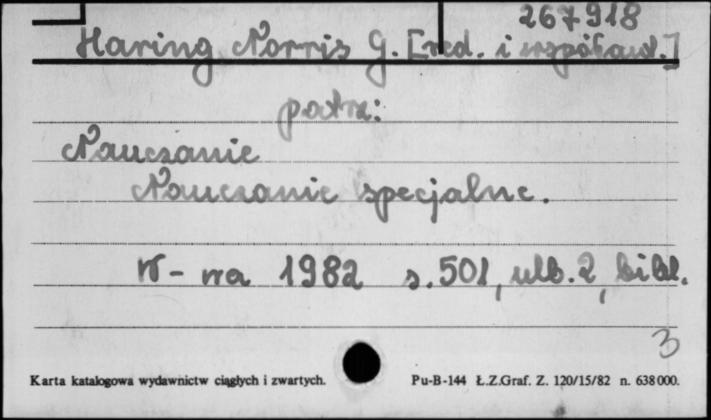 267918
Haring Norris G. [red. i współaut.]
patrz:
Nauczanie
Nauczanie specjalne.
W-wa 1982 s. 501, ulb. 2, bibl.
3
Karta katalogowa wydawnictw ciągłych i zwartych. Pu-B-144 Ł.Z.Graf. Z. 120/15/82 n. 638000.